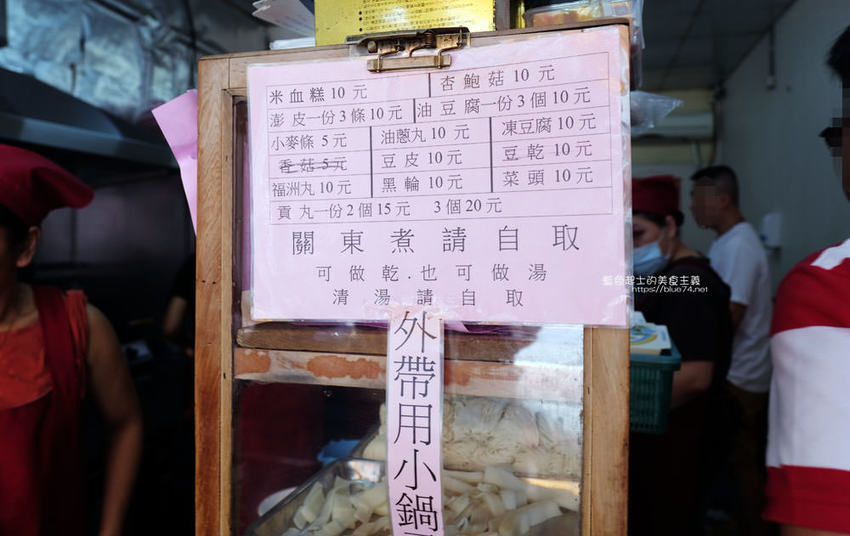 米血糕 10 元 杏鮑菇 10 元
澎皮一份 3 條 10 元 油豆腐一份 3 個 10 元
小麥條 5 元 油蔥丸 10 元 凍豆腐 10 元
香菇 5 元 豆皮 10 元 豆乾 10 元
福洲丸 10 元 黑輪 10 元 菜頭 10 元
貢丸一份 2 個 15 元 3 個 20 元
關東煮請自取
可做乾.也可做湯
清湯請自取
藍色起士的美食主義
https://blue74.net
外帶用小鍋